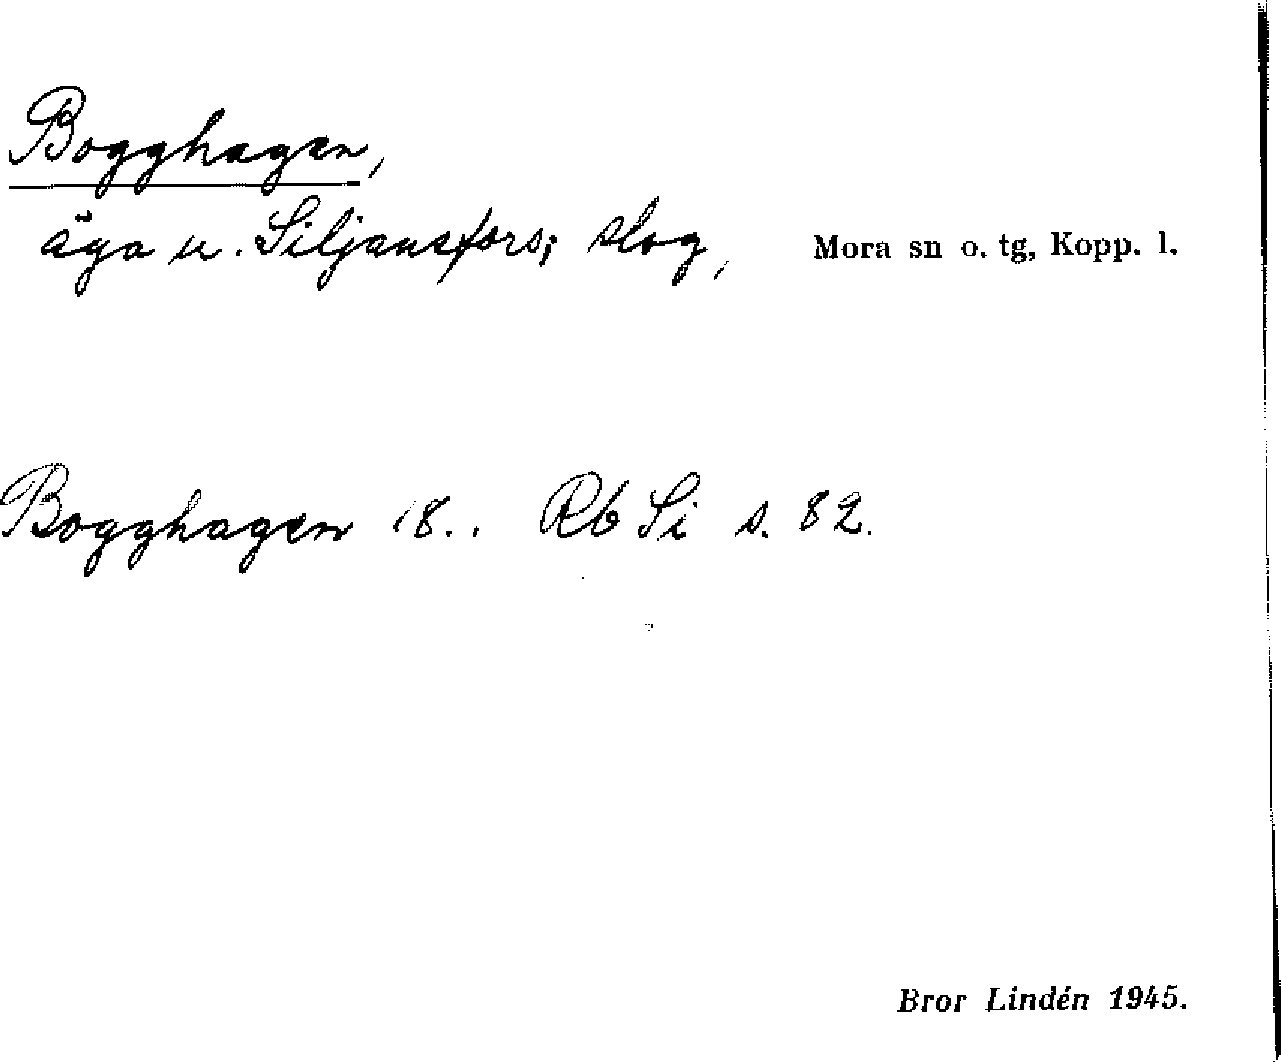 Bogghagen,
äga u. Siljansfors; slog, Mora sn o. tg, Kopp. l.
Bogghagen 18.. Rb Si s. 82.
Bror Lindén 1945.